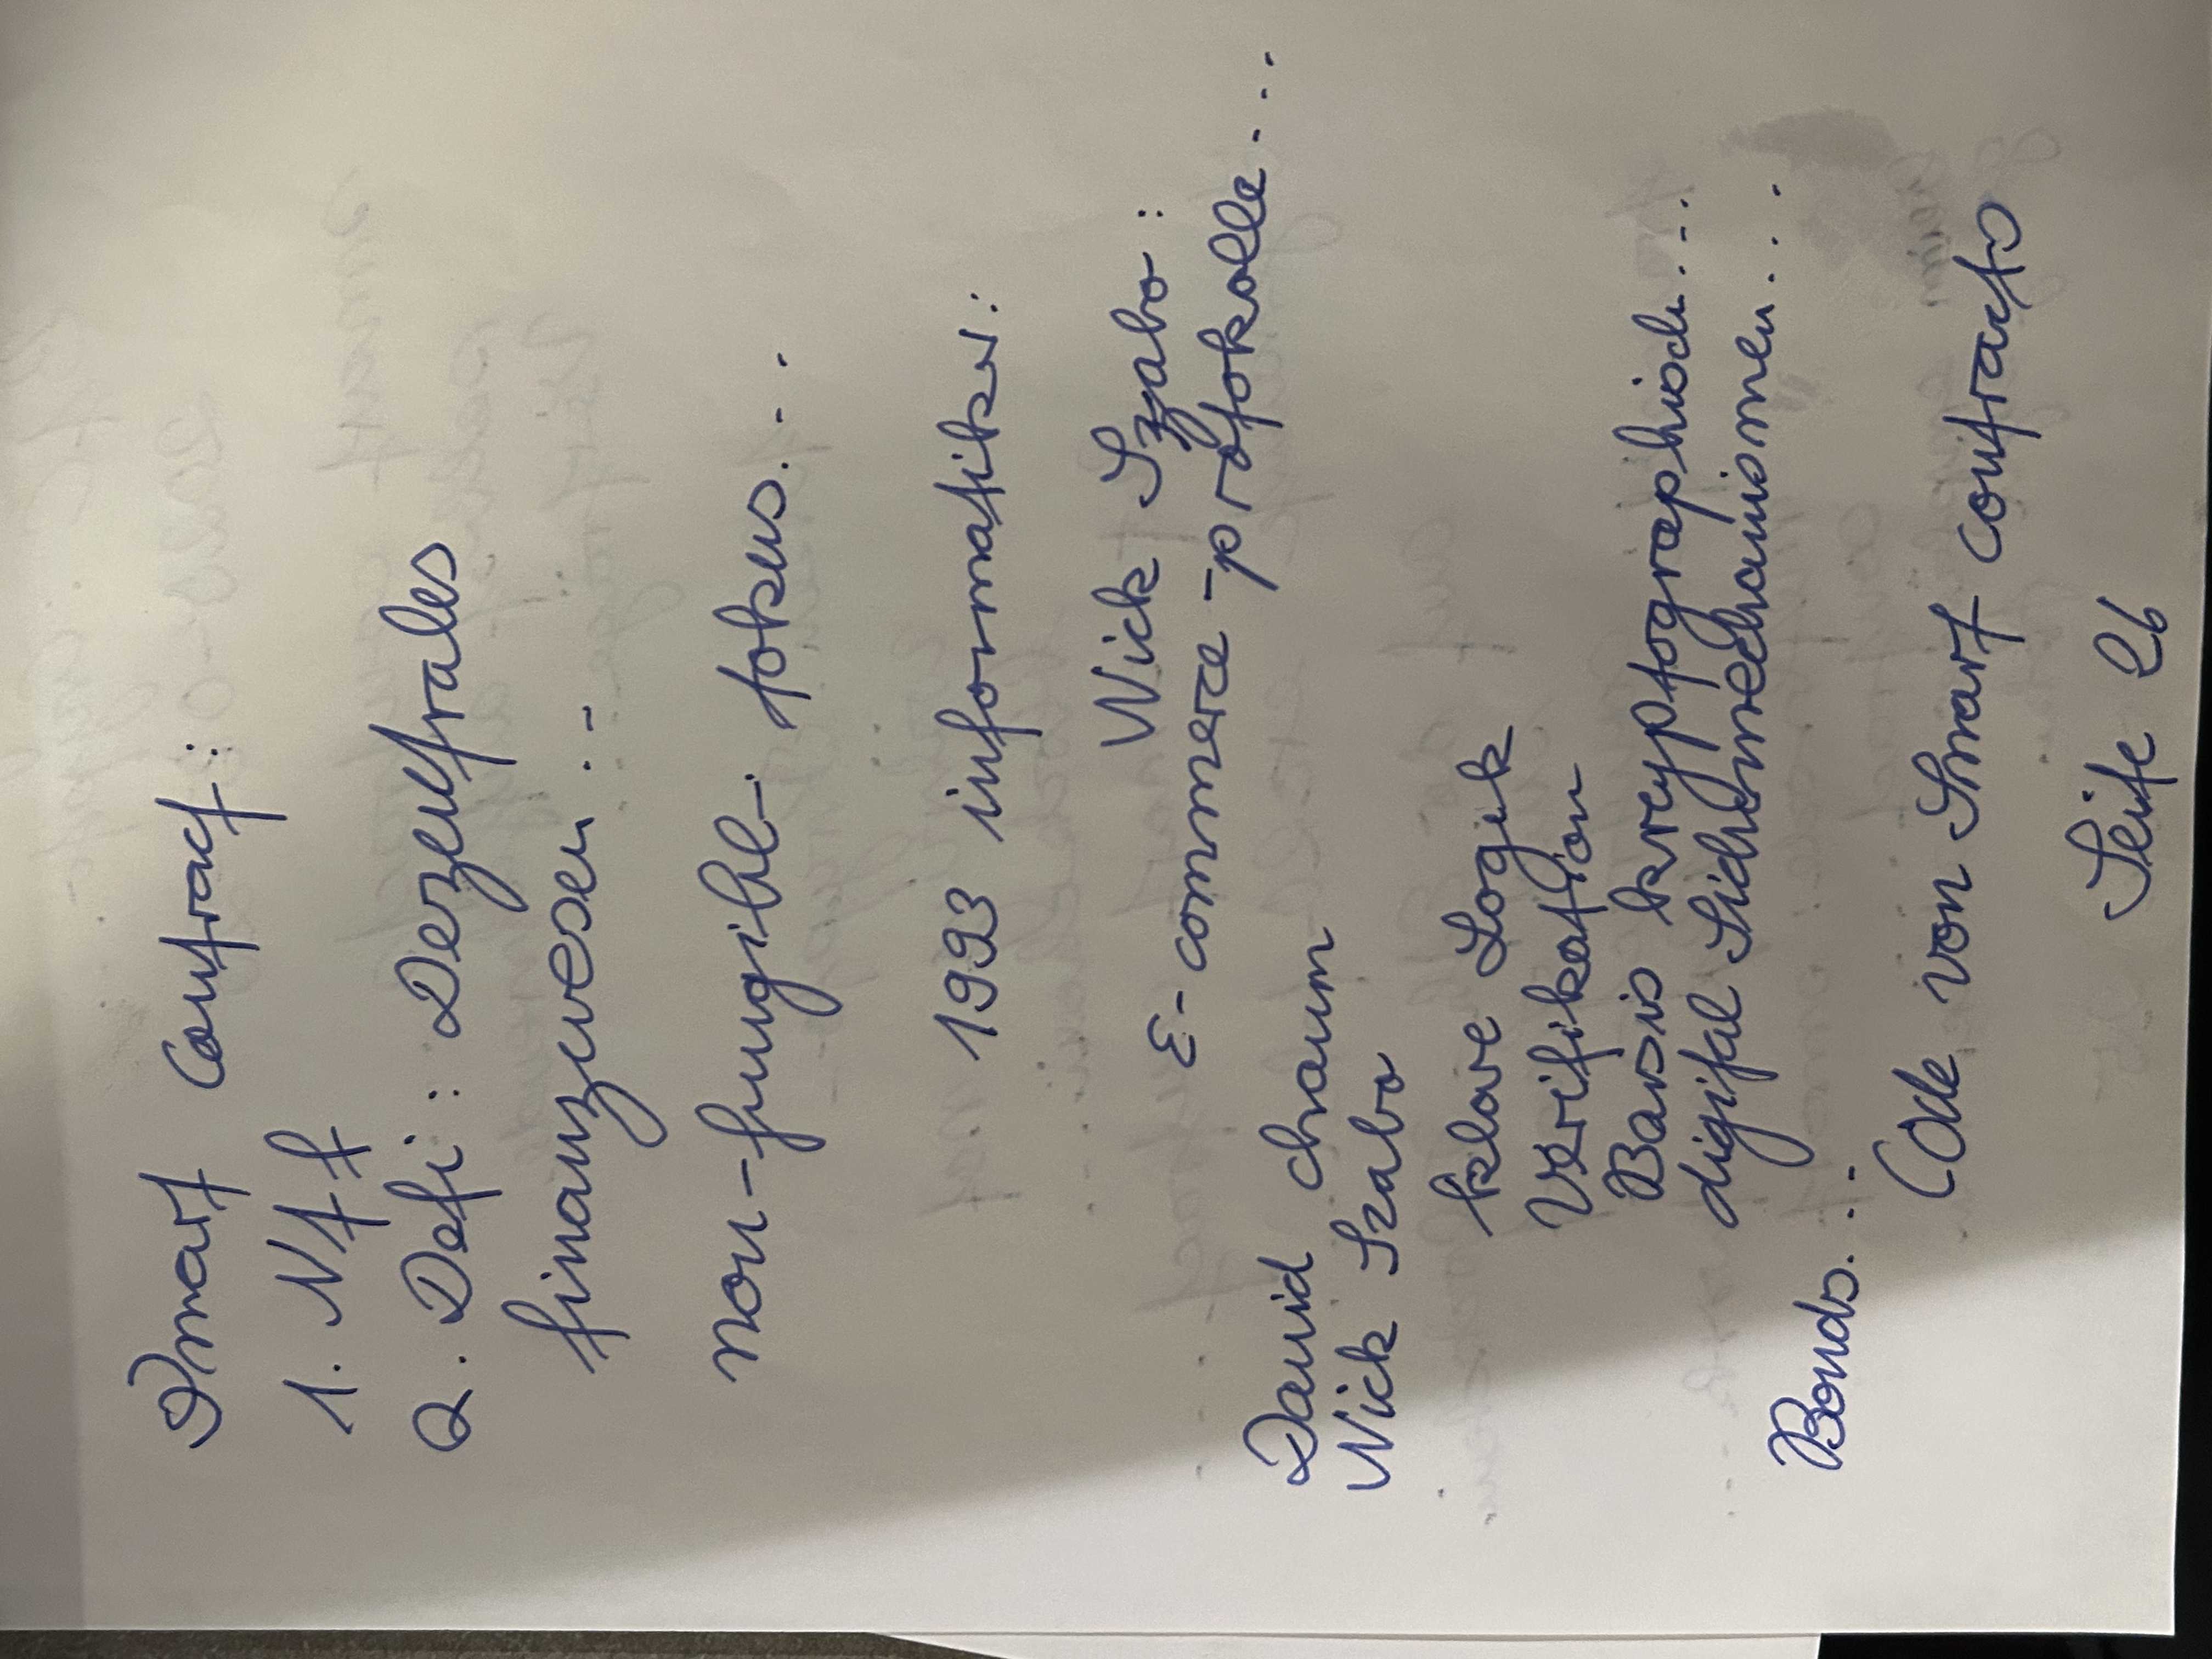 Smart Contract:
1. NFT
2. Defi: Dezentrales
finanzwesen...
non-fungible- tokens...
1993 informatiker:
Nick Szabo:
E-commerce-protokolle...
David chaum
Nick Szabo
klare Logik
Verifikation
Basis kryptographisch...
digital Sichmechanismen...
Bonds...
Code von Smart contracts
Seite 26